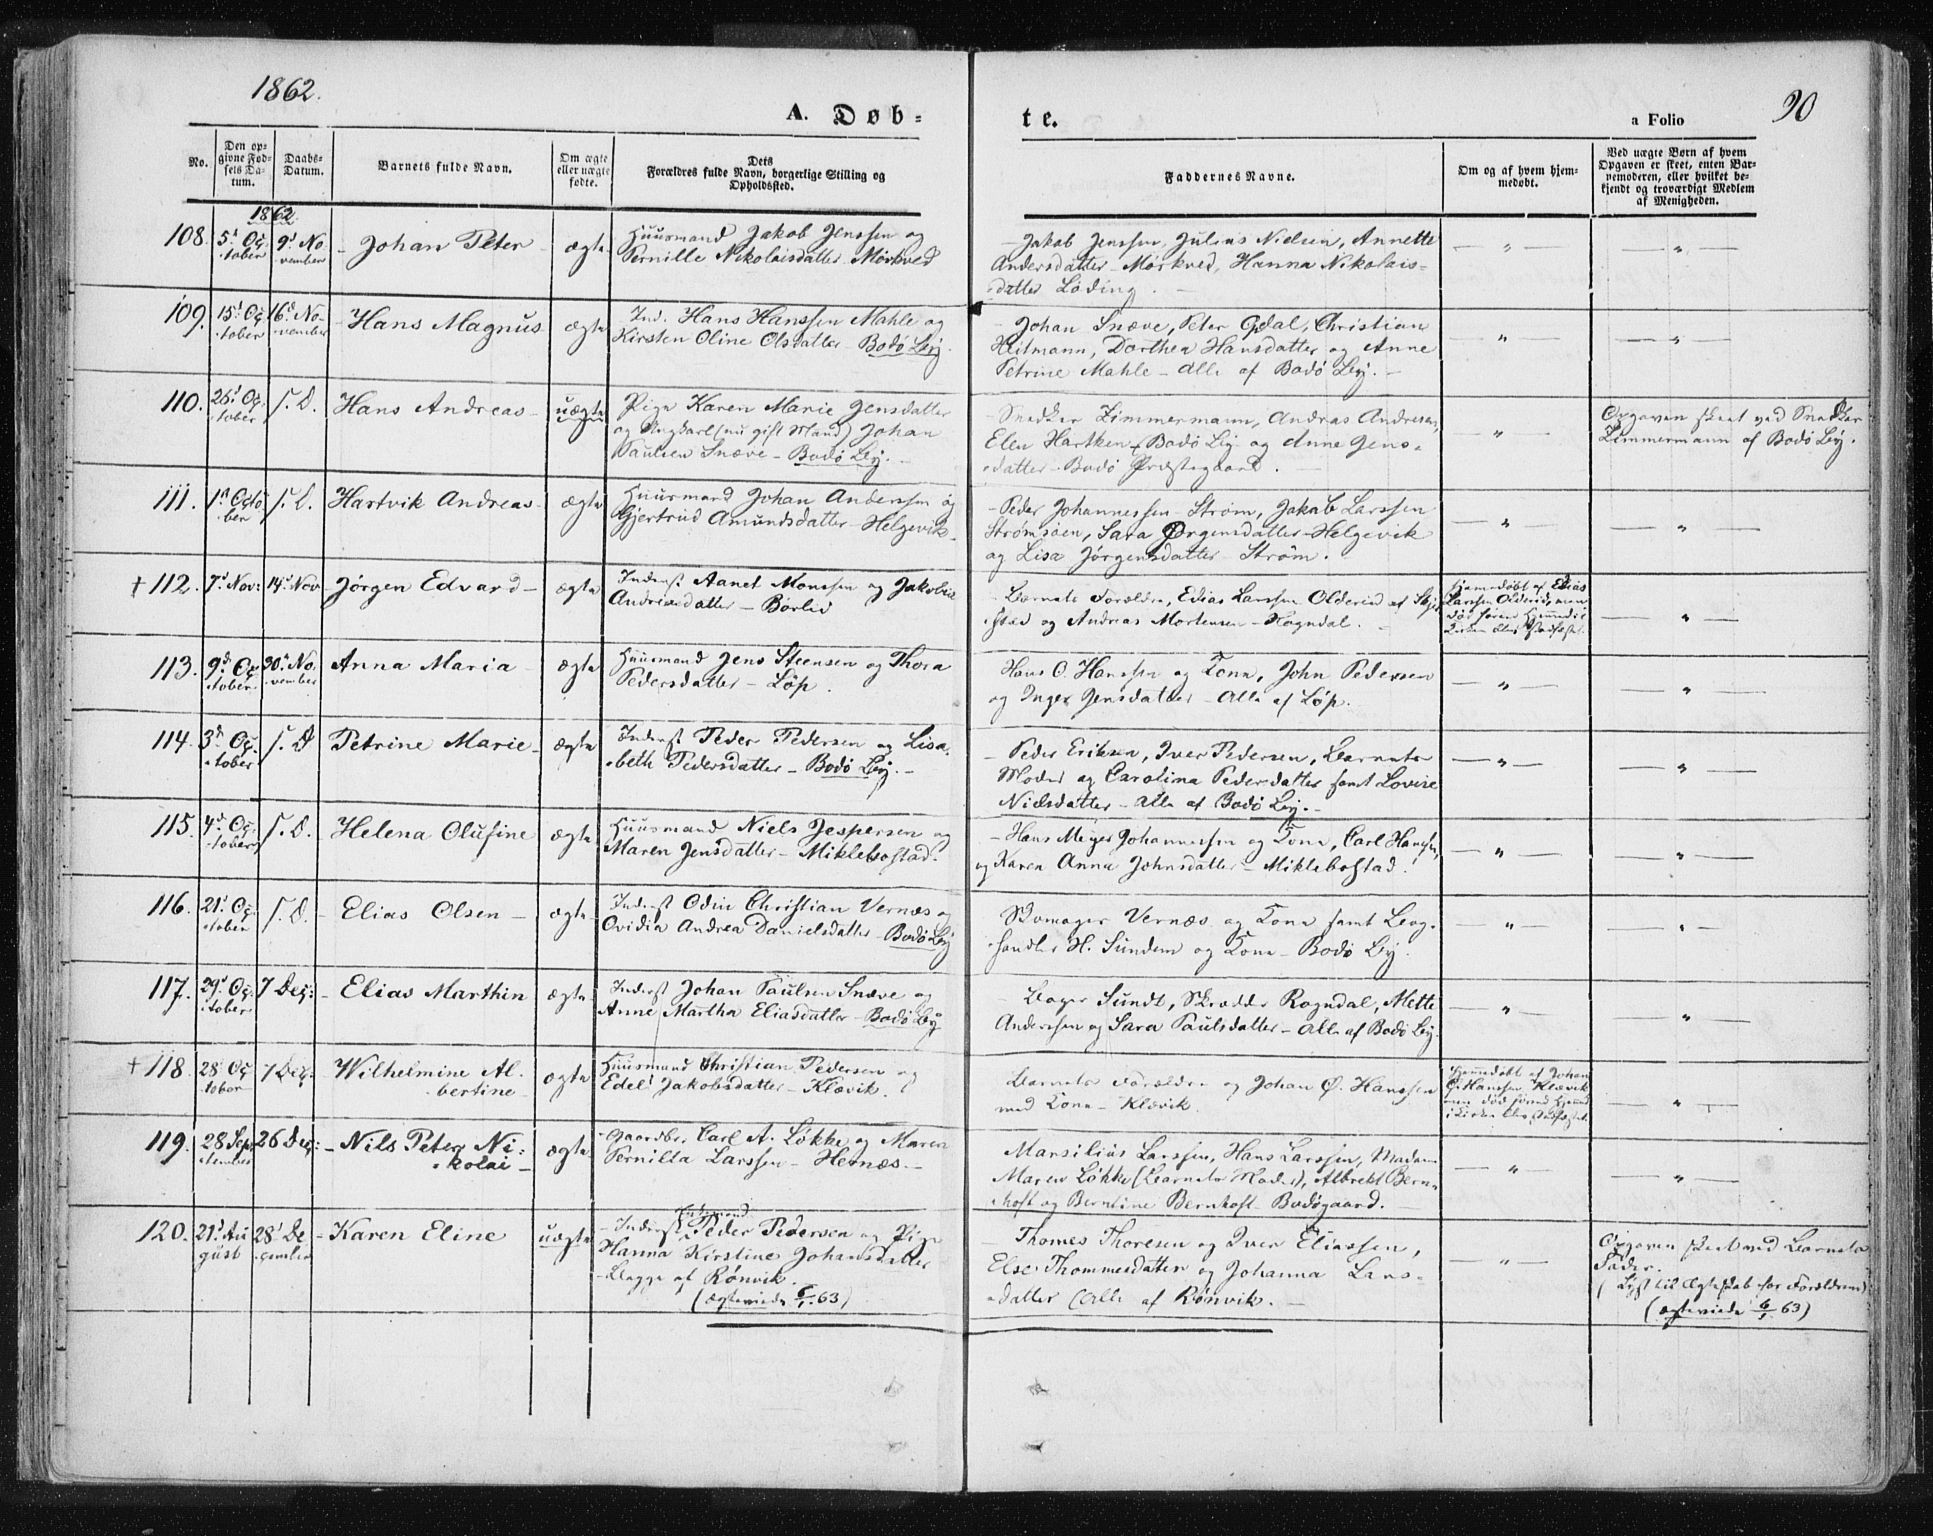 1862.
A. Døb-
te.
a Folio
90
No.
Den op-
givne Fød-
sels Da-
tum.
Daabs-
Datum.
Barnets fulde Navn.
Om ægte
eller uægte
fødte.
Dets
Forældres fulde Navn, borgerlige Stilling og
Opholdssted.
Faddernes Navne.
Om og af hvem hjem-
medøbt.
Ved uægte Børn af hvem
Opgaven er skeet, enten Bar-
nemoderen, eller hvilket be-
kjendt og troværdigt Medlem
af Menigheden.
1862
108. 5t Oc-
tober
9d No-
vember
- Johan Peter -
ægte
Huusmand Jakob Jenssen og
Pernille Nikolaisdatter Mørkved
- Jakob Jenssen, Julius Nielsen, Annette
Andersdatter - Mørkved, Hanna Nikolais-
datter Løding. -
— „ —
— „ —
109. 15d Oc-
tober
16d No-
vember
- Hans Magnus
ægte
Ind. Hans Hanssen Mahle og
Kirsten Oline Olsdatter - Bodø By.
- Johan Snæve, Peter Christian
Heitmann, Dorthea Hansdatter og Anne
Petrine Mahle - Alle af Bodø By. -
— „ —
— „ —
110. 26d Oc-
tober
s. D.
Hans Andreas -
uægte
Pige Karen Marie Jensdatter
og Ungkarl (nu gift Mand) Johan
Paulsen Snæve - Bodø By. -
- Snedker Zimmermann, Andreas Andresen,
Elen Hartken Bodø By og Anne Jens-
datter - Bodø Præstegaard. -
— „ —
Opgaven skeet ved Snedker
Zimmermann af Bodø By.
111. 1d Octo-
ber
s. D.
Hartvik Andreas -
ægte
Huusmand Johan Andersen og
Gjertrud Amundsdatter - Helgevik -
- Peder Johannessen - Strøm, Jakob Larssen
Strømsøen, Sara Jørgensdatter - Helgevik
og Lisa Jørgensdatter Strøm.
— „ —
— „ —
+ 112. 7d Nov:
14d Nov
Jørgen Edvard -
ægte
Inderst Aanet Monssen og Jakobia
Andreasdatter - Børlid
- Barnets Forældre, Edias Larssen Oldereid af Skjer-
stad og Andreas Mortensen - Høgndal. -
Hjemmedøbt af Edias
Larssen Olderid, men
død førend
— „ —
113. 9d Oc-
tober
30d No-
vember
Anna Maria -
ægte
Huusmand Jens Steensen og Thora
Pedersdatter - Løp.
Hans O. Hanssen og Kone, John Pedersen
og Inger Jensdatter - Alle af Løp.
— „ —
— „ —
114. 3d Oc-
tober
s. D
Petrine Marie -
ægte
Inderst Peder Pedersen og Lisa-
beth Pedersdatter - Bodø By. -
- Peder Eriksen, Iver Pedersen, Barnets
Moder og Carolina Pedersdatter samt Lovise
Nielsdatter - Alle af Bodø By. -
— „ —
— „ —
115. 4d Oc-
tober
s. D.
Helena Olufine
ægte
Huusmand Niels Jespersen og
Maren Jensdatter - Miklebostad.
- Hans Meyer Johannessen og Kone, Carl Hanssen,
og Karen Anna Johnsdatter - Miklebostad.
— „ —
— „ —
116. 21d Oc-
tober
s. D.
- Elias Olsen -
ægte
Inderst Odin Christian Vernæs og
Ovidia Andrea Danielsdatter - Bodø By
Skomager Vernæs og Kone samt Bog-
handler H. Sundem og Kone - Bodø By.
— „ —
— „ —
117. 29d Oc-
tober
7 Dec:
- Elias Marthin
ægte
Inderst Johan Paulsen Snæve og
Anne Martha Eliasdatter - Bodø By
- Bager Sundt, Skrædder Rogndal, Mette
Anderssen og Sara Paulsdatter - Alle af Bodø By.
— „ —
— „ —
+ 118. 28 Oc-
tober
7 Dec:
- Wilhelmine Al-
bertine -
ægte
Huusmand Christian Pedersen og
Edel Jakobsdatter - Klævik.
Barnets Forældre og Johan Ø. Hanssen
med Kone - Klævik.
Hjemmedøbt af Johan
Ø. Hanssen Klævik
men død førend
— „ —
119. 28 Sep-
tember
26 Dec:
- Nils Peter Ni-
kolai -
ægte
Gaardbr. Carl A. Løkke og Maren
Pernilla Larssen - Hernæs. -
Marsilius Larssen, Hans Larssen, Madam
Maren Løkke (Barnets Moder), Albrekt Bern-
hoft og Berntine Bernhoft - Bodøgaard.
— „ —
— „ —
120. 21d Au-
gust
28d De-
cember
- Karen Eline
uægte
Enkemand
- Inderst Peder Pedersen og Pige
Hanna Kirstine Johansdatter
- Begge af Rønvik.
(Ægteviede 6/1. 63)
- Thomes Thoresen og Iver Eliassen,
Else Thommesdatter og Johanna Lars-
datter (Alle af Rønvik. -
— „ —
Opgaven skeet ved Barnets
Fader.
(Lyst til Ægteskab for Forældrene)
(ægteviede 6/1 63)